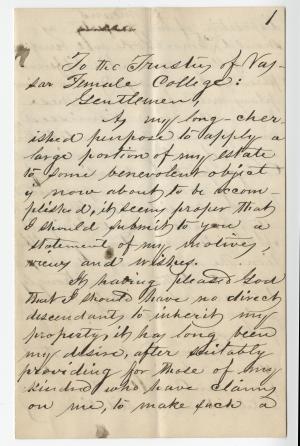 1
To the Trustees of Vas-
sar Female College:
Gentlemen,
As my long-cher-
ished purpose to apply a
large portion of my estate
to some benevolent object
is now about to be accom-
plished, it seems proper that
I should submit to you a
statement of my motives,
views and wishes.
It having pleased God
that I should have no direct
descendants to inherit my
property, it has long been
my desire, after suitably
providing for those of my
kindred who have claims
on me, to make such a